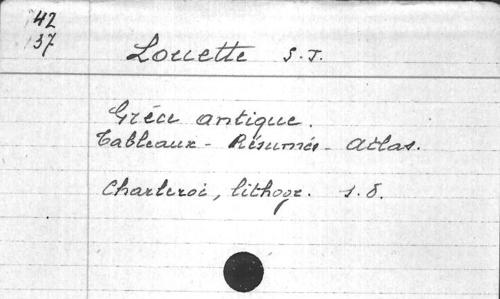 42
37
Louette S.J.
Grèce antique.
Tableaux - Résumés - Atlas.
Charleroi, lithogr. s.d.